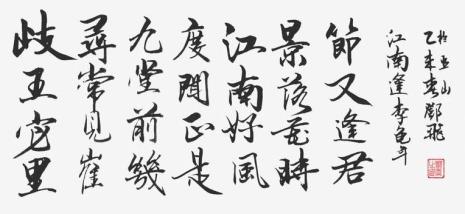 歧王宅里
尋常見崔
九堂前幾
度聞正是
江南好風
景落花時
節又逢君
江南逢李龜年
乙未春鄧飛
山